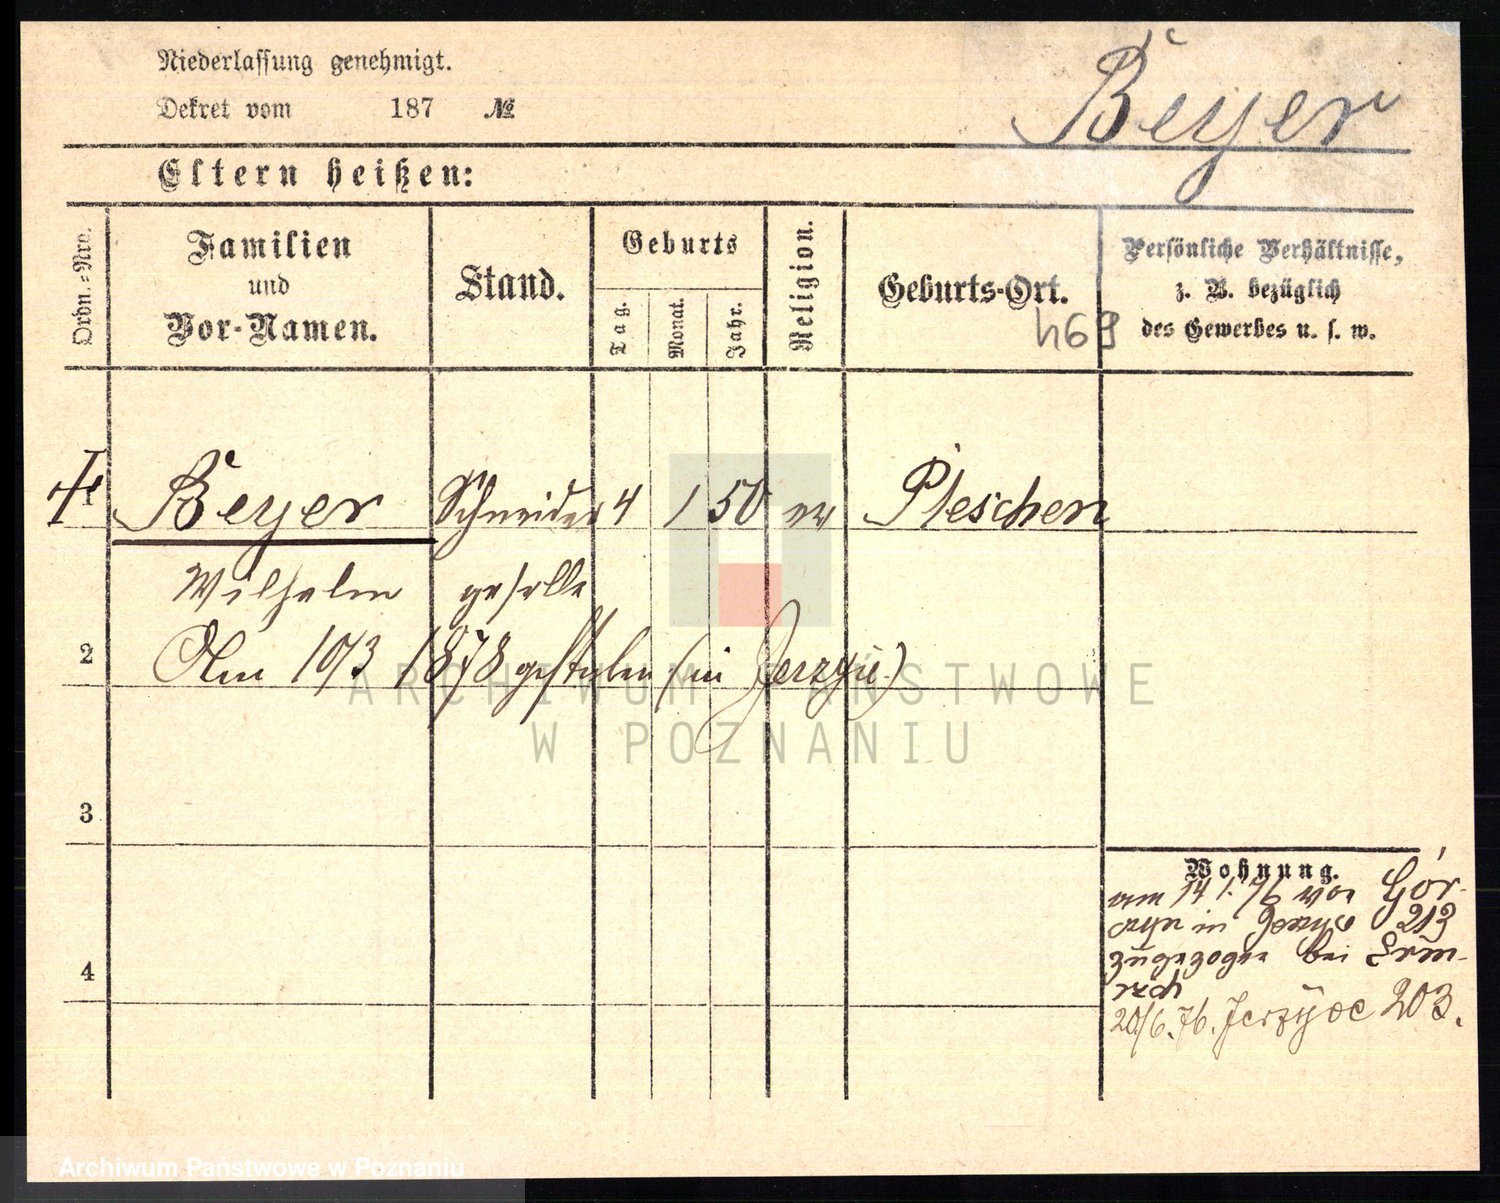 Niederlassung genehmigt.
Dekret vom 187 №
Beyer
Eltern heißen:
Ordn.=Nro.
Familien
und
Vor-Namen.
Stand.
Geburts
Tag.
Monat.
Jahr.
Religion.
Geburts-Ort.
469
Persönliche Verhältnisse,
z. B. bezüglich
des Gewerbes u. s. w.
1 Beyer Schneider 4 1 50 ev Pleschen
Wilhelm geselle
2 Am 10/3 1878 gestorben (in Jerzyce)
ARCHIWUM PAŃSTWOWE
W POZNANIU
3
Wohnung.
am 14 1. 76 von Gór-
czyn in 213
zugezogen bei
4
20/6. 76. Jerzyce 203.
Archiwum Państwowe w Poznaniu